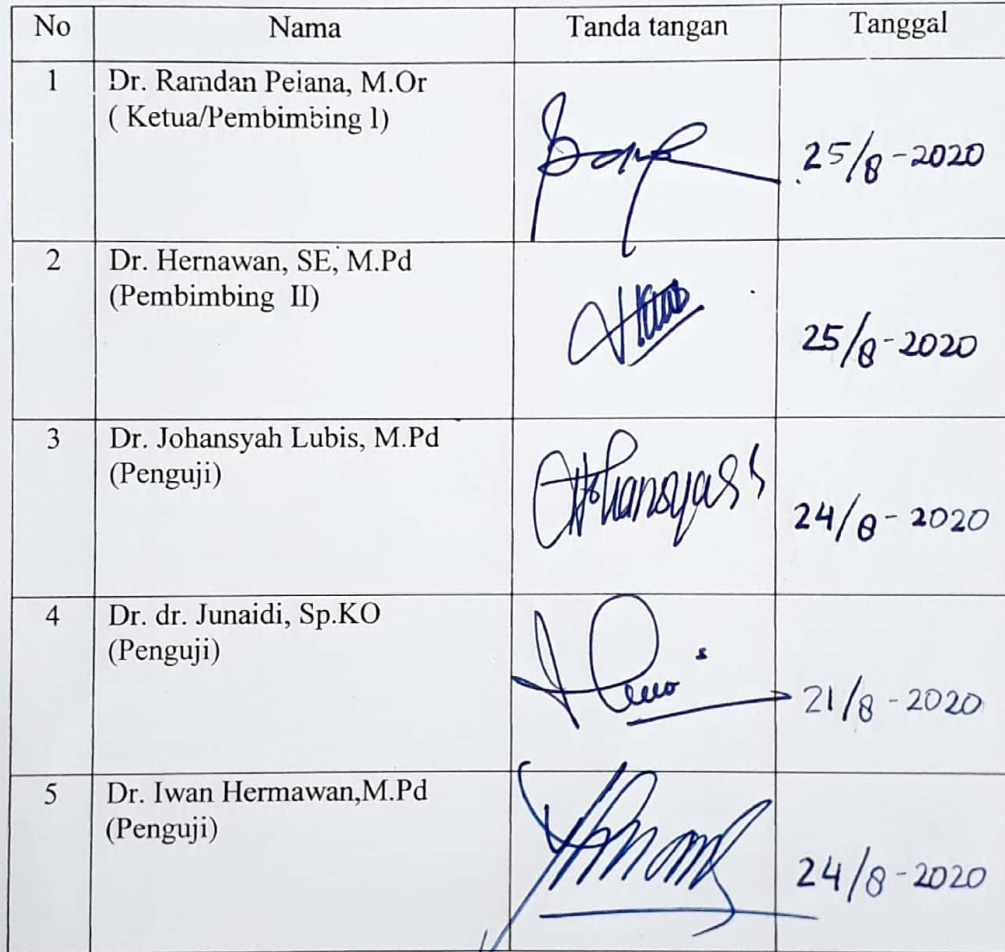 No Nama Tanda tangan Tanggal
1 Dr. Ramdan Pelana, M.Or
( Ketua/Pembimbing I)
25/8-2020
2 Dr. Hernawan, SE, M.Pd
(Pembimbing II)
25/8-2020
3 Dr. Johansyah Lubis, M.Pd
(Penguji)
24/8-2020
4 Dr. dr. Junaidi, Sp.KO
(Penguji)
21/8-2020
5 Dr. Iwan Hermawan,M.Pd
(Penguji)
24/8-2020